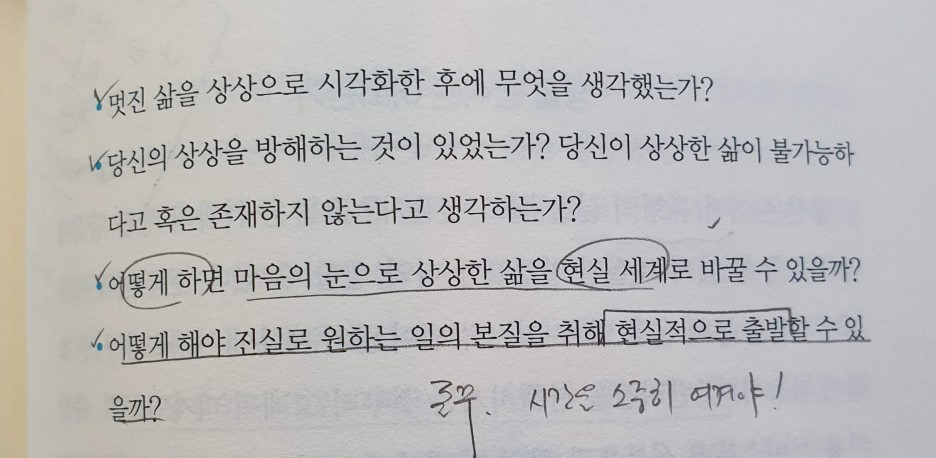 멋진 삶을 상상으로 시각화한 후에 무엇을 생각했는가?
당신의 상상을 방해하는 것이 있었는가? 당신이 상상한 삶이 불가능하
다고 혹은 존재하지 않는다고 생각하는가?
어떻게 하면 마음의 눈으로 상상한 삶을 현실 세계로 바꿀 수 있을까?
어떻게 해야 진실로 원하는 일의 본질을 취해 현실적으로 출발할 수 있
을까?
시간을 소중히 여겨야!